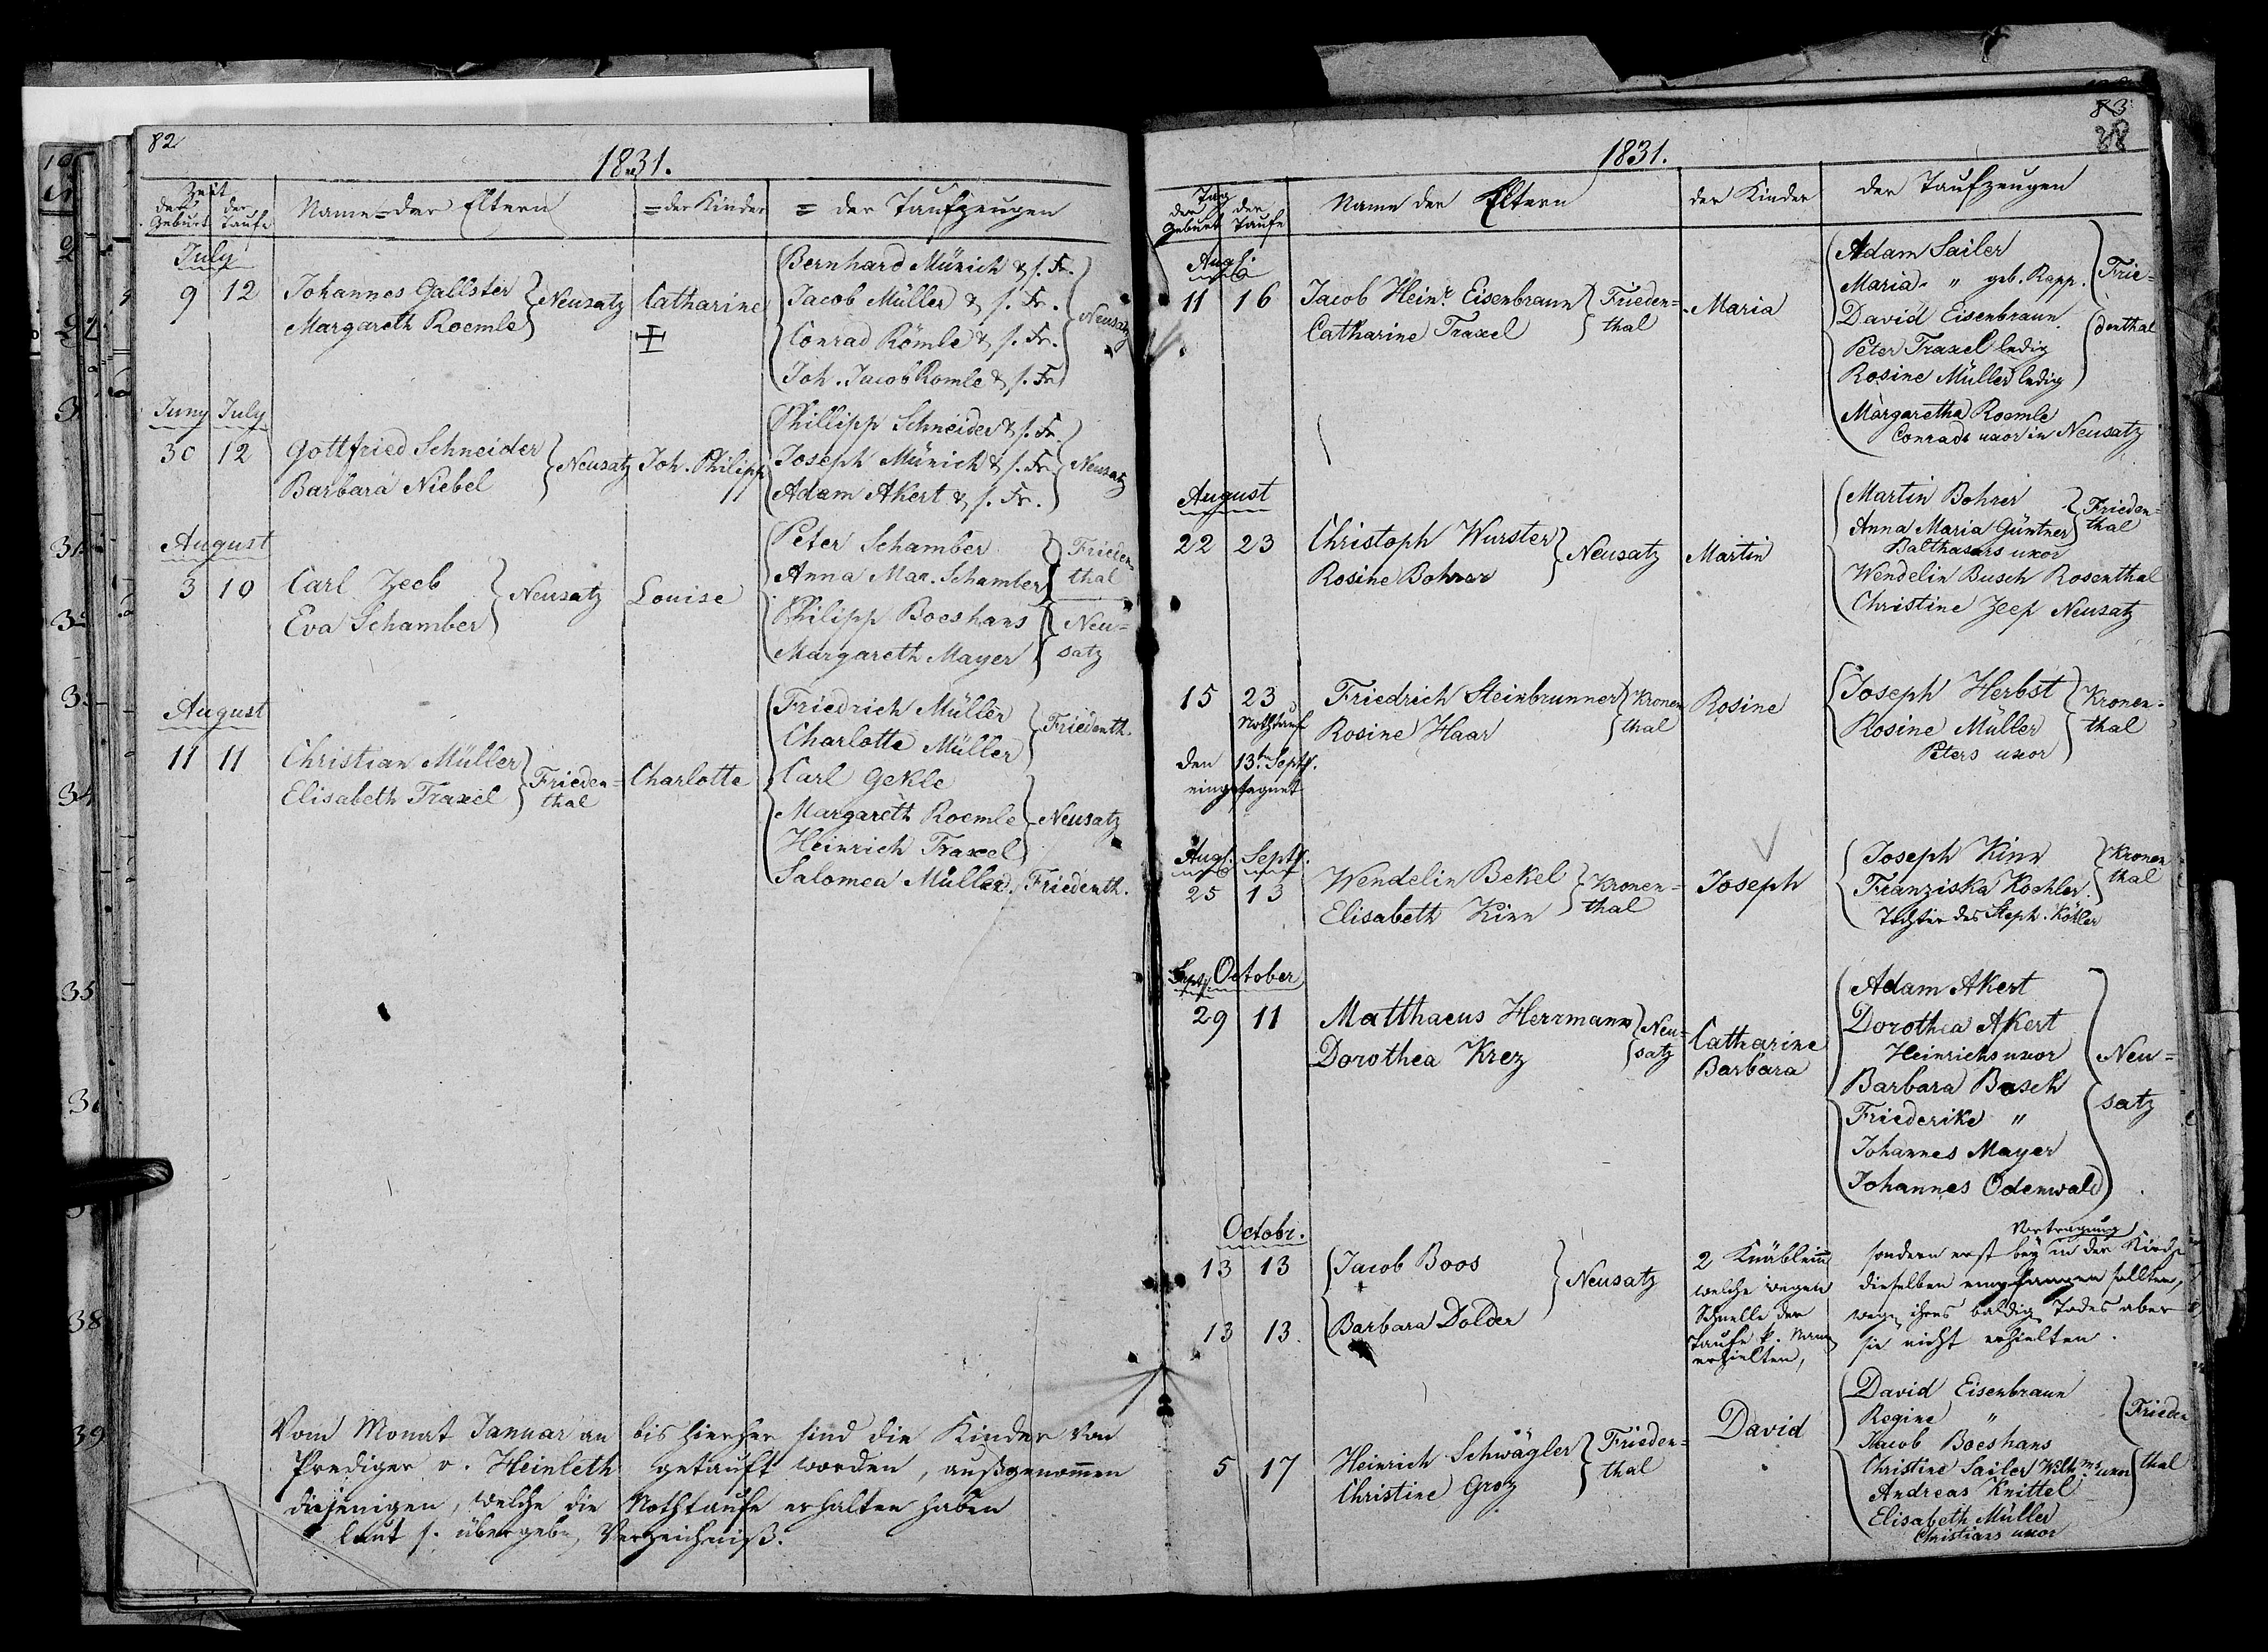 82
1831.
Zeit
der Geburt der Taufe
Name der Eltern
= der Kinder
= der Taufzeugen
July
9 12
Johannes Gallster
Margareth Roemle
Neusatz
Catharine
Bernhard Münich & s. Fr.
Jacob Müller & s. Fr.
Conrad Römle & s. Fr.
Joh. Jacob Romle & s. Fr.
Neusatz
Juny July
30 12
Gottfried Schneider
Barbara Niebel
Neusatz
Joh. Philipp
Phillipp Schneider & s. Fr.
Joseph Münich & s. Fr.
Adam Akert & s. Fr.
Neusatz
August
3 10
Carl Zeeb
Eva Schamber
Neusatz
Louise
Peter Schamber
Anna Mar. Schamber
Frieden-
thal
Philipp Boeshans
Margareth Mayer
Neu=
satz
August
11 11
Christian Müller
Elisabeth Traxel
Frieden=
thal
Charlotte
Friedrich Müller
Charlotte Müller
Friedenth.
Carl Gekle
Margareth Roemle
Heinrich Traxel
Neusatz
Salomea Müller Friedenth.
Vom Monat Januar an bis hierher sind die Kinder von
Prediger v. Heinleth getauft worden, außgenommen
diejenigen, welche die Nothtaufe erhalten haben
laut s. übergeb. Verzeichniß.
83
88
1831.
Tag
der Geburt der Taufe
Name der Eltern
der Kinder
der Taufzeugen
Augt.
11 16
Jacob Heinr. Eisenbraun
Catharine Traxel
Frieden=
thal
Maria
Adam Sailer
Maria " geb. Rapp.
David Eisenbraun
Peter Traxel ledig
Rosine Müller ledig
Frie=
denthal
Margaretha Roemle
Conrads uxor in Neusatz
August
22 23
Christoph Wurster
Rosine Bohrer
Neusatz
Martin
Martin Bohrer
Anna Maria Güntner
Balthasars uxor
Frieden=
thal
Wendelin Busch Rosenthal
Christine Zeep Neusatz
15 23
Nothtauf
den 13ten Septr.
eingesegnet
Friedrich Steinbrunner
Rosine Haar
Kronen
thal
Rosine
Joseph Herbst
Rosine Müller
Peters uxor
Kronen=
thal
Augt. Septr.
25 13
Wendelin Bekel
Elisabeth Kinn
Kronen=
thal
Joseph
Joseph Kinn
Franziska Koehler
Tochter des Steph. Köhler
Kronen
thal
Septr. October
29 11
Matthaeus Herrmann
Dorothea Krez
Neu=
satz
Catharine
Barbara
Adam Akert
Dorothea Akert
Heinrichs uxor
Barbara Basch
Friederike "
Johannes Mayer
Johannes Odenwald
Neu=
satz
Octobr.
13 13
13 13.
Jacob Boos
+
Barbara Dolder
Neusatz
2 Knäblein
welche wegen
Schnelle der
Taufe k. Namen
erhielten,
Vortragung
sondern erst bey in der Kirche
dieselben empfangen sollten,
wegen ihres baldig Todes aber
sie nicht erhielten.
5 17
Heinrich Schwägler
Christine Groz
Frieden=
thal
David
David Eisenbraun
Regine "
Jacob Boeshans
Christine Sailer Wilhms uxor
Andreas Knittel
Elisabeth Müller
Christians uxor
Frieden
thal